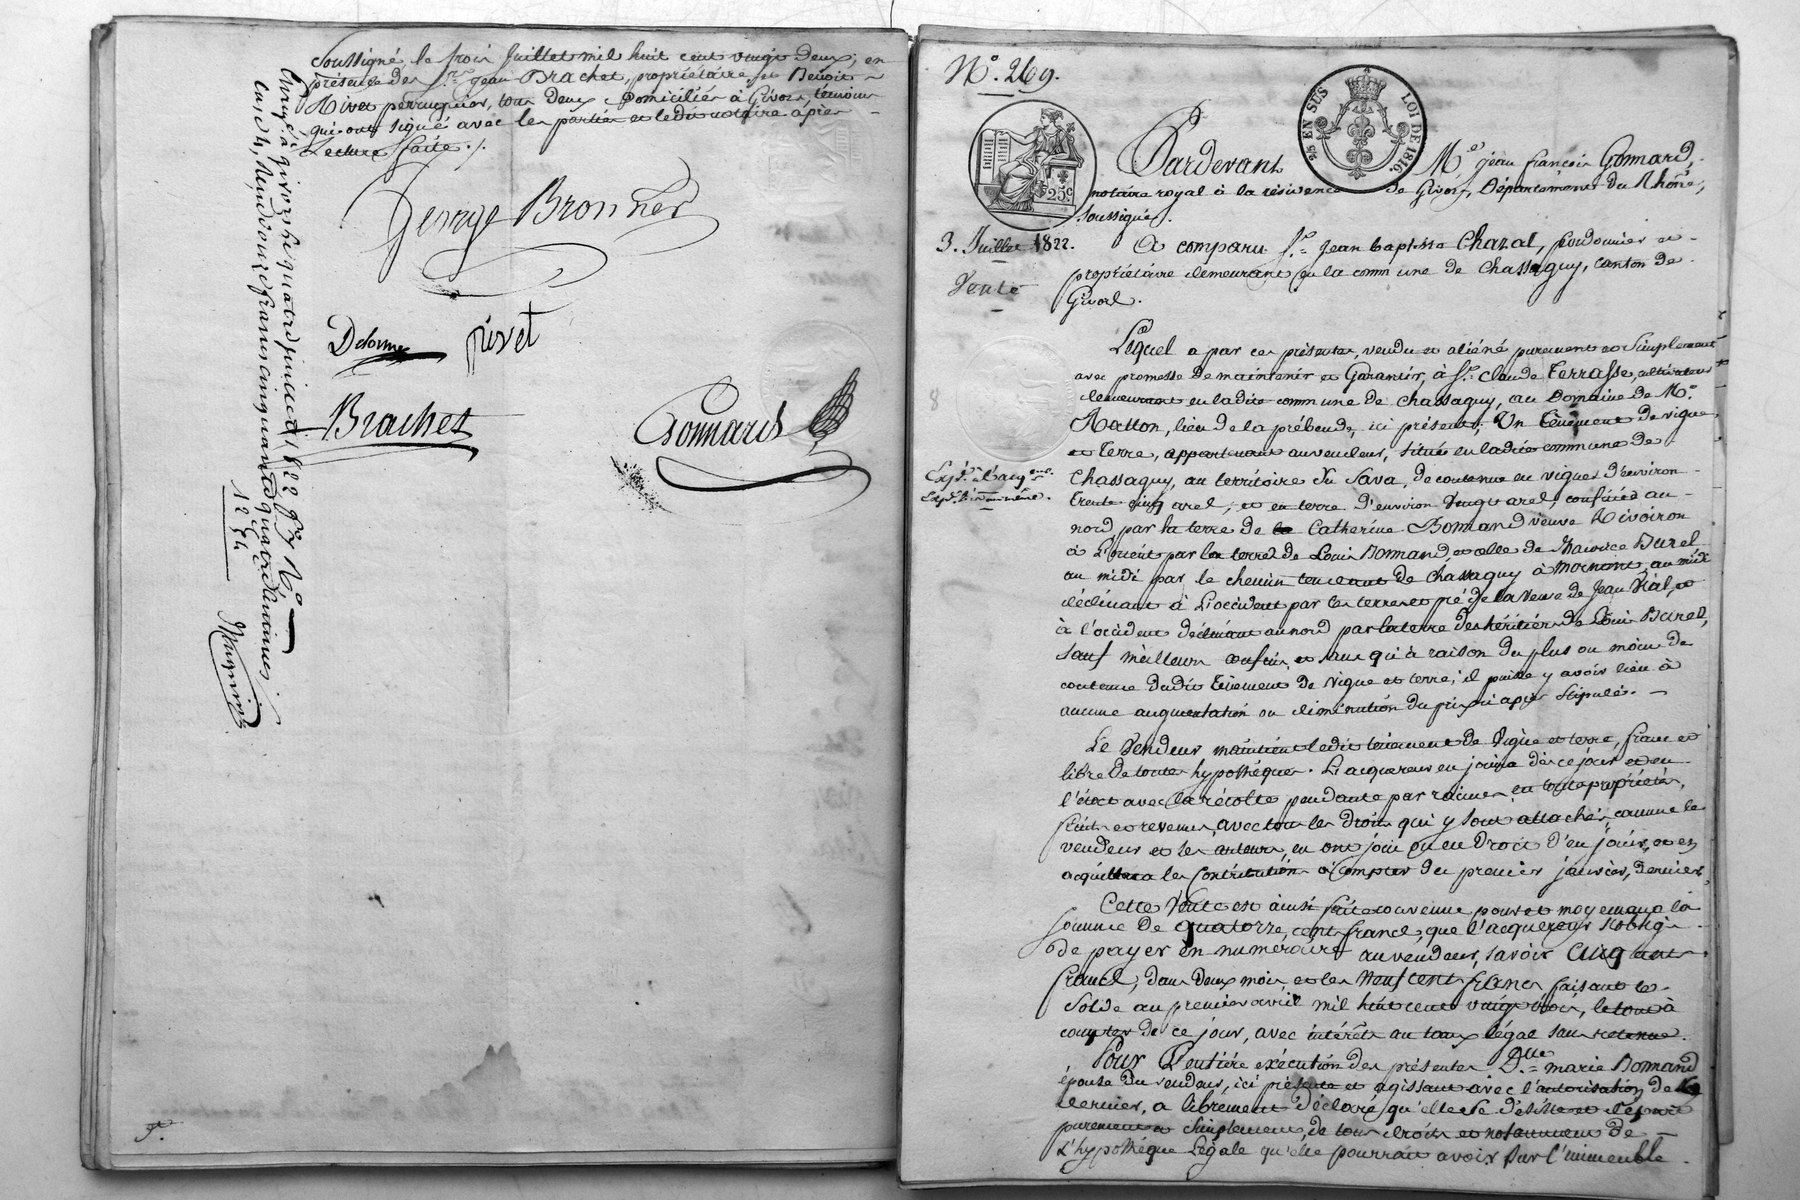 Soussigné, le trois Juillet mil huit cent vingt deux, en
présence des Srs Jean Brachet, propriétaire, et Benoit
Rivet perruquier, tous deux domiciliés à Givors, témoins
qui ont signé avec les parties et ledit notaire après
Lecture faite.
George Bronner
Delorme pivet
Brachet Gonnard
à givors le quatre juillet 1822
francs cinquante quatre centimes
N°. 269.
25 EN SUS LOI DE 1816
25c
Pardevant Me Jean françois Gonnard,
notaire royal à la résidence de Givors, Département du Rhône,
soussigné.
3. Juillet 1822.
Vente
A comparu Sr. Jean baptiste Chazal, cordonnier et
propriétaire demeurant en la commune de Chassaguy, canton de
Givors.
Lequel a par ces présentes, vendu et aliéné purement et simplement
avec promesse de maintenir et Garantir, à Sr. Claude Terrasse, cultivateur
demeurant en ladite commune de Chassaguy, au Domaine de Mr.
Matton, lieu de la prébende, ici présent; Un tènement de vigne
et Terre, appartenant au vendeur, situés en ladite commune de
Chassaguy, au territoire du Sava, de contenue en vignes d'environ
trente cinq ares, et en terre d'environ vingt ares, confinés au
nord par la terre de Catherine Bomand veuve Rivoiron
à L'orient par la terre de Louis Bomand, et celle de Maurice Burel
au midi par le chemin tendant de Chassaguy à Mornant, au midi
déclinant à L'occident par les terres et pré de la Veuve de Jean Vial, et
à l'occident déclinant au nord par la terre des héritiers de Louis Burel,
sauf meilleurs confins, et sans qu'à raison du plus ou moins de
contenue dudit tènement de vigne et terre, il puisse y avoir lieu à
aucune augmentation ou diminution du prix ci après stipulé.
Le Vendeur maintient ledit tènement de vigne et terre, franc et
libre de toutes hypothèques. L'acquéreur en jouira dès ce jour et en
l'état avec la récolte pendante par racines, en toute propriété,
fruits et revenus, avec tous les droits qui y sont attachés, comme le
vendeur et les auteurs, en ont joui ou eu Droit d'en jouir, et en
acquittera les Contributions à compter du premier janvier, dernier,
Cette Vente est ainsi faite convenue pour et moyennant la
somme de quatorze, cent francs, que l'acquéreur s'oblige
de payer en numéraire au vendeur, savoir Cinq cents
francs, dans deux mois, et les Neuf cent francs faisant le
solde au premier avril mil huit cent vingt trois, le tout à
compter de ce jour, avec intérêts au taux légal sans retenue.
Pour L'entière exécution des présentes Dlle marie Bomand
épouse du vendeur, ici présente et agissant avec l'autorisation de ce
dernier, a librement déclaré qu'elle se désiste et départ
purement et simplement, de tous droits et notamment de
L'hypothèque Légale qu'elle pourrait avoir sur l'immeuble